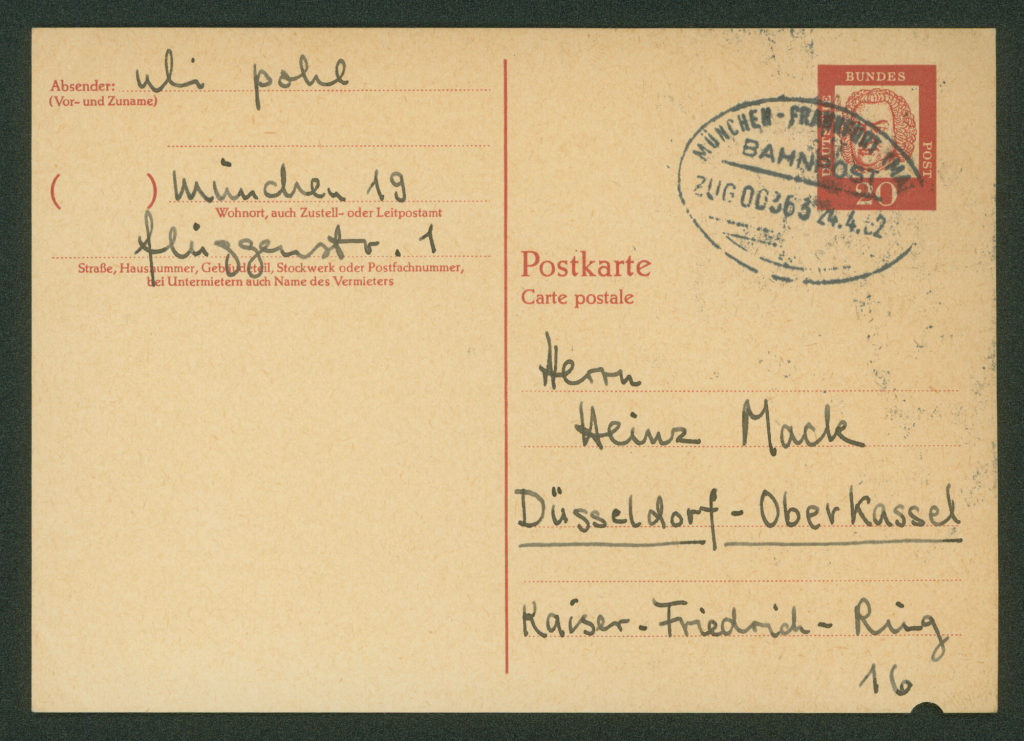 Absender:
(Vor- und Zuname)
uli pohl
( ) München 19
Wohnort, auch Zustell- oder Leitpostamt
flüggenstr. 1
Straße, Hausnummer, Gebäudeteil, Stockwerk oder Postfachnummer,
bei Untermietern auch Name des Vermieters
BUNDES
POST
20
MÜNCHEN - FRANKFURT (M)
BAHNPOST
ZUG 00363 24.4.62
Postkarte
Carte postale
Herrn
Heinz Mack
Düsseldorf - Oberkassel
Kaiser-Friedrich-Ring
16